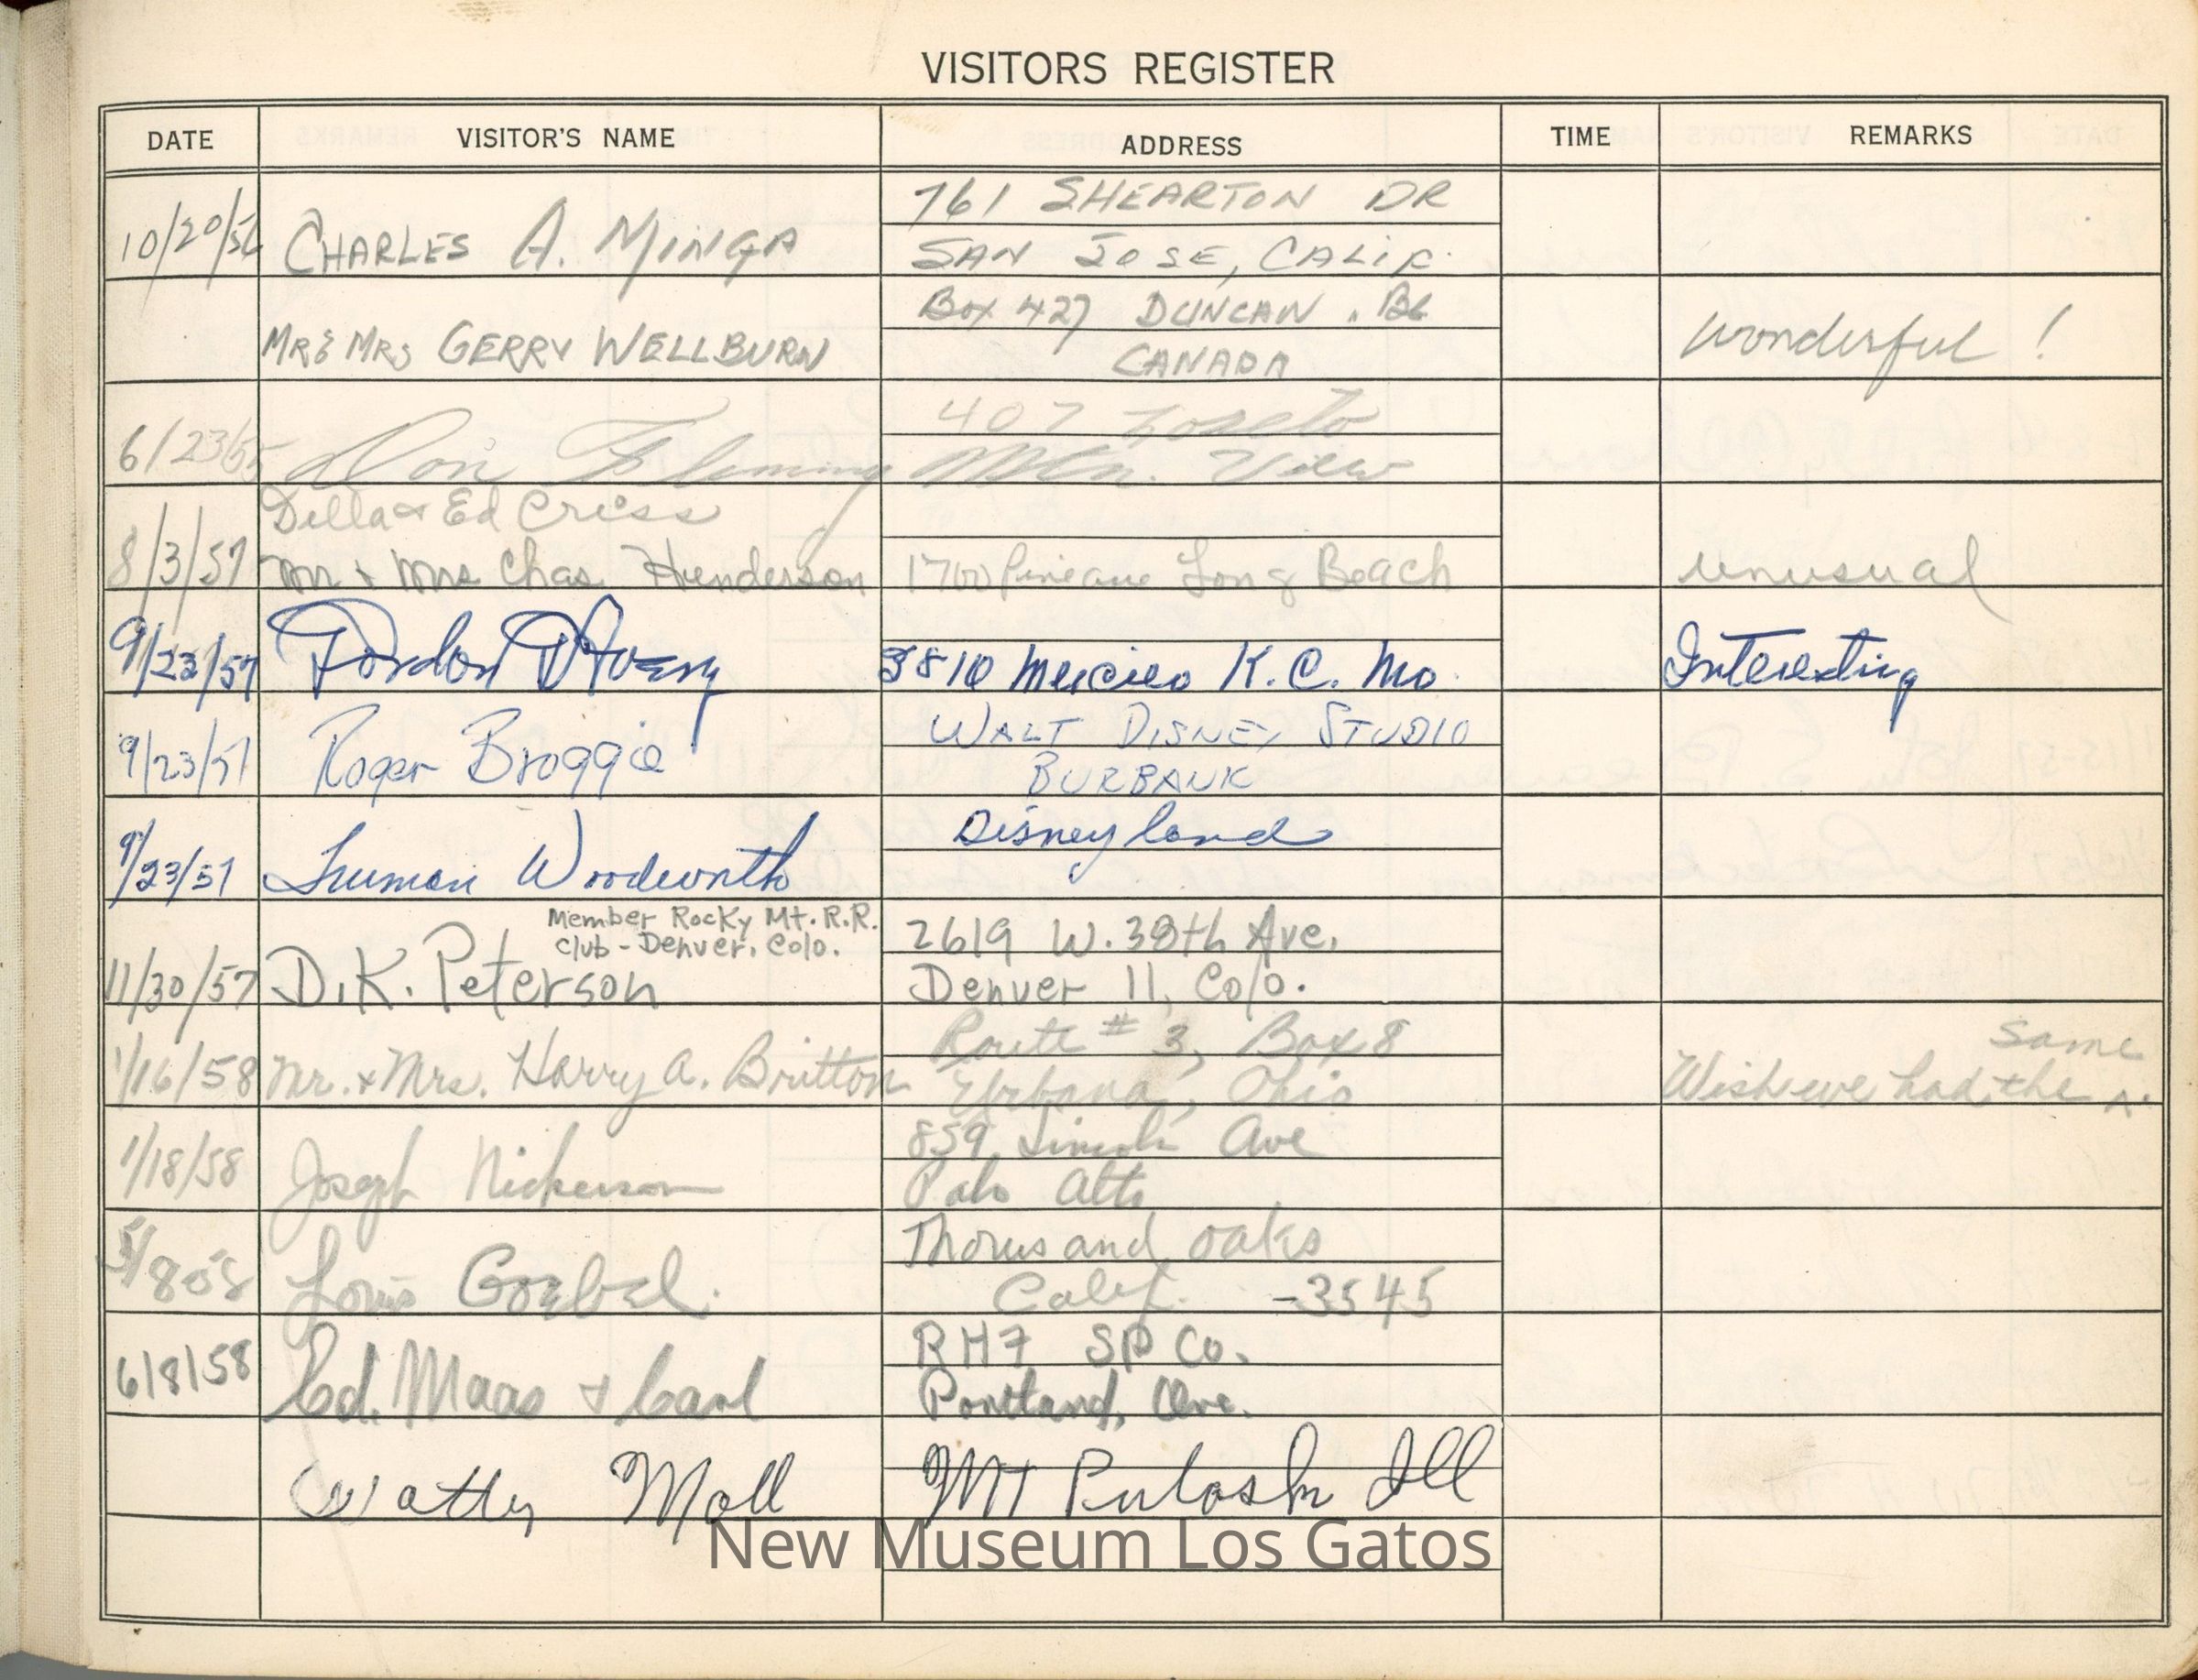 VISITORS REGISTER
DATE VISITOR'S NAME ADDRESS TIME REMARKS
761 SHEARTON DR
10/20/56 CHARLES A. MINGA SAN JOSE, CALIF.
Box 427 DUNCAN. BC
MR & MRS GERRY WELLBURN CANADA wonderful!
407 Loreto
6/23/55 Don Fleming Mtn. View
Della & Ed Criss
8/3/57 Mr & Mrs Chas Henderson 1700 Pine ave Long Beach unusual
9/23/57 Gordon 3810 K.C. Mo. Interesting
WALT DISNEY STUDIO
9/23/57 Roger Broggie BURBANK
Disneyland
9/23/57 Truman Woodworth
Member Rocky Mt. R.R.
Club - Denver, Colo.
2619 W. 38th Ave.
11/30/57 D.K. Peterson Denver 11, Colo.
Route # 3, Box 8
1/16/58 Mr. & Mrs. Harry A. Britton Urbana, Ohio Wish we had the same
859 Lincoln Ave
1/18/58 Joseph Nickerson Palo Alto
Thousand oaks
Louis Goebel. Calif. -3545
RH7 SP Co.
6/8/58 Ed. Maas & Carl Portland, Ore.
Watty Moll Mt Pulaski Ill
New Museum Los Gatos